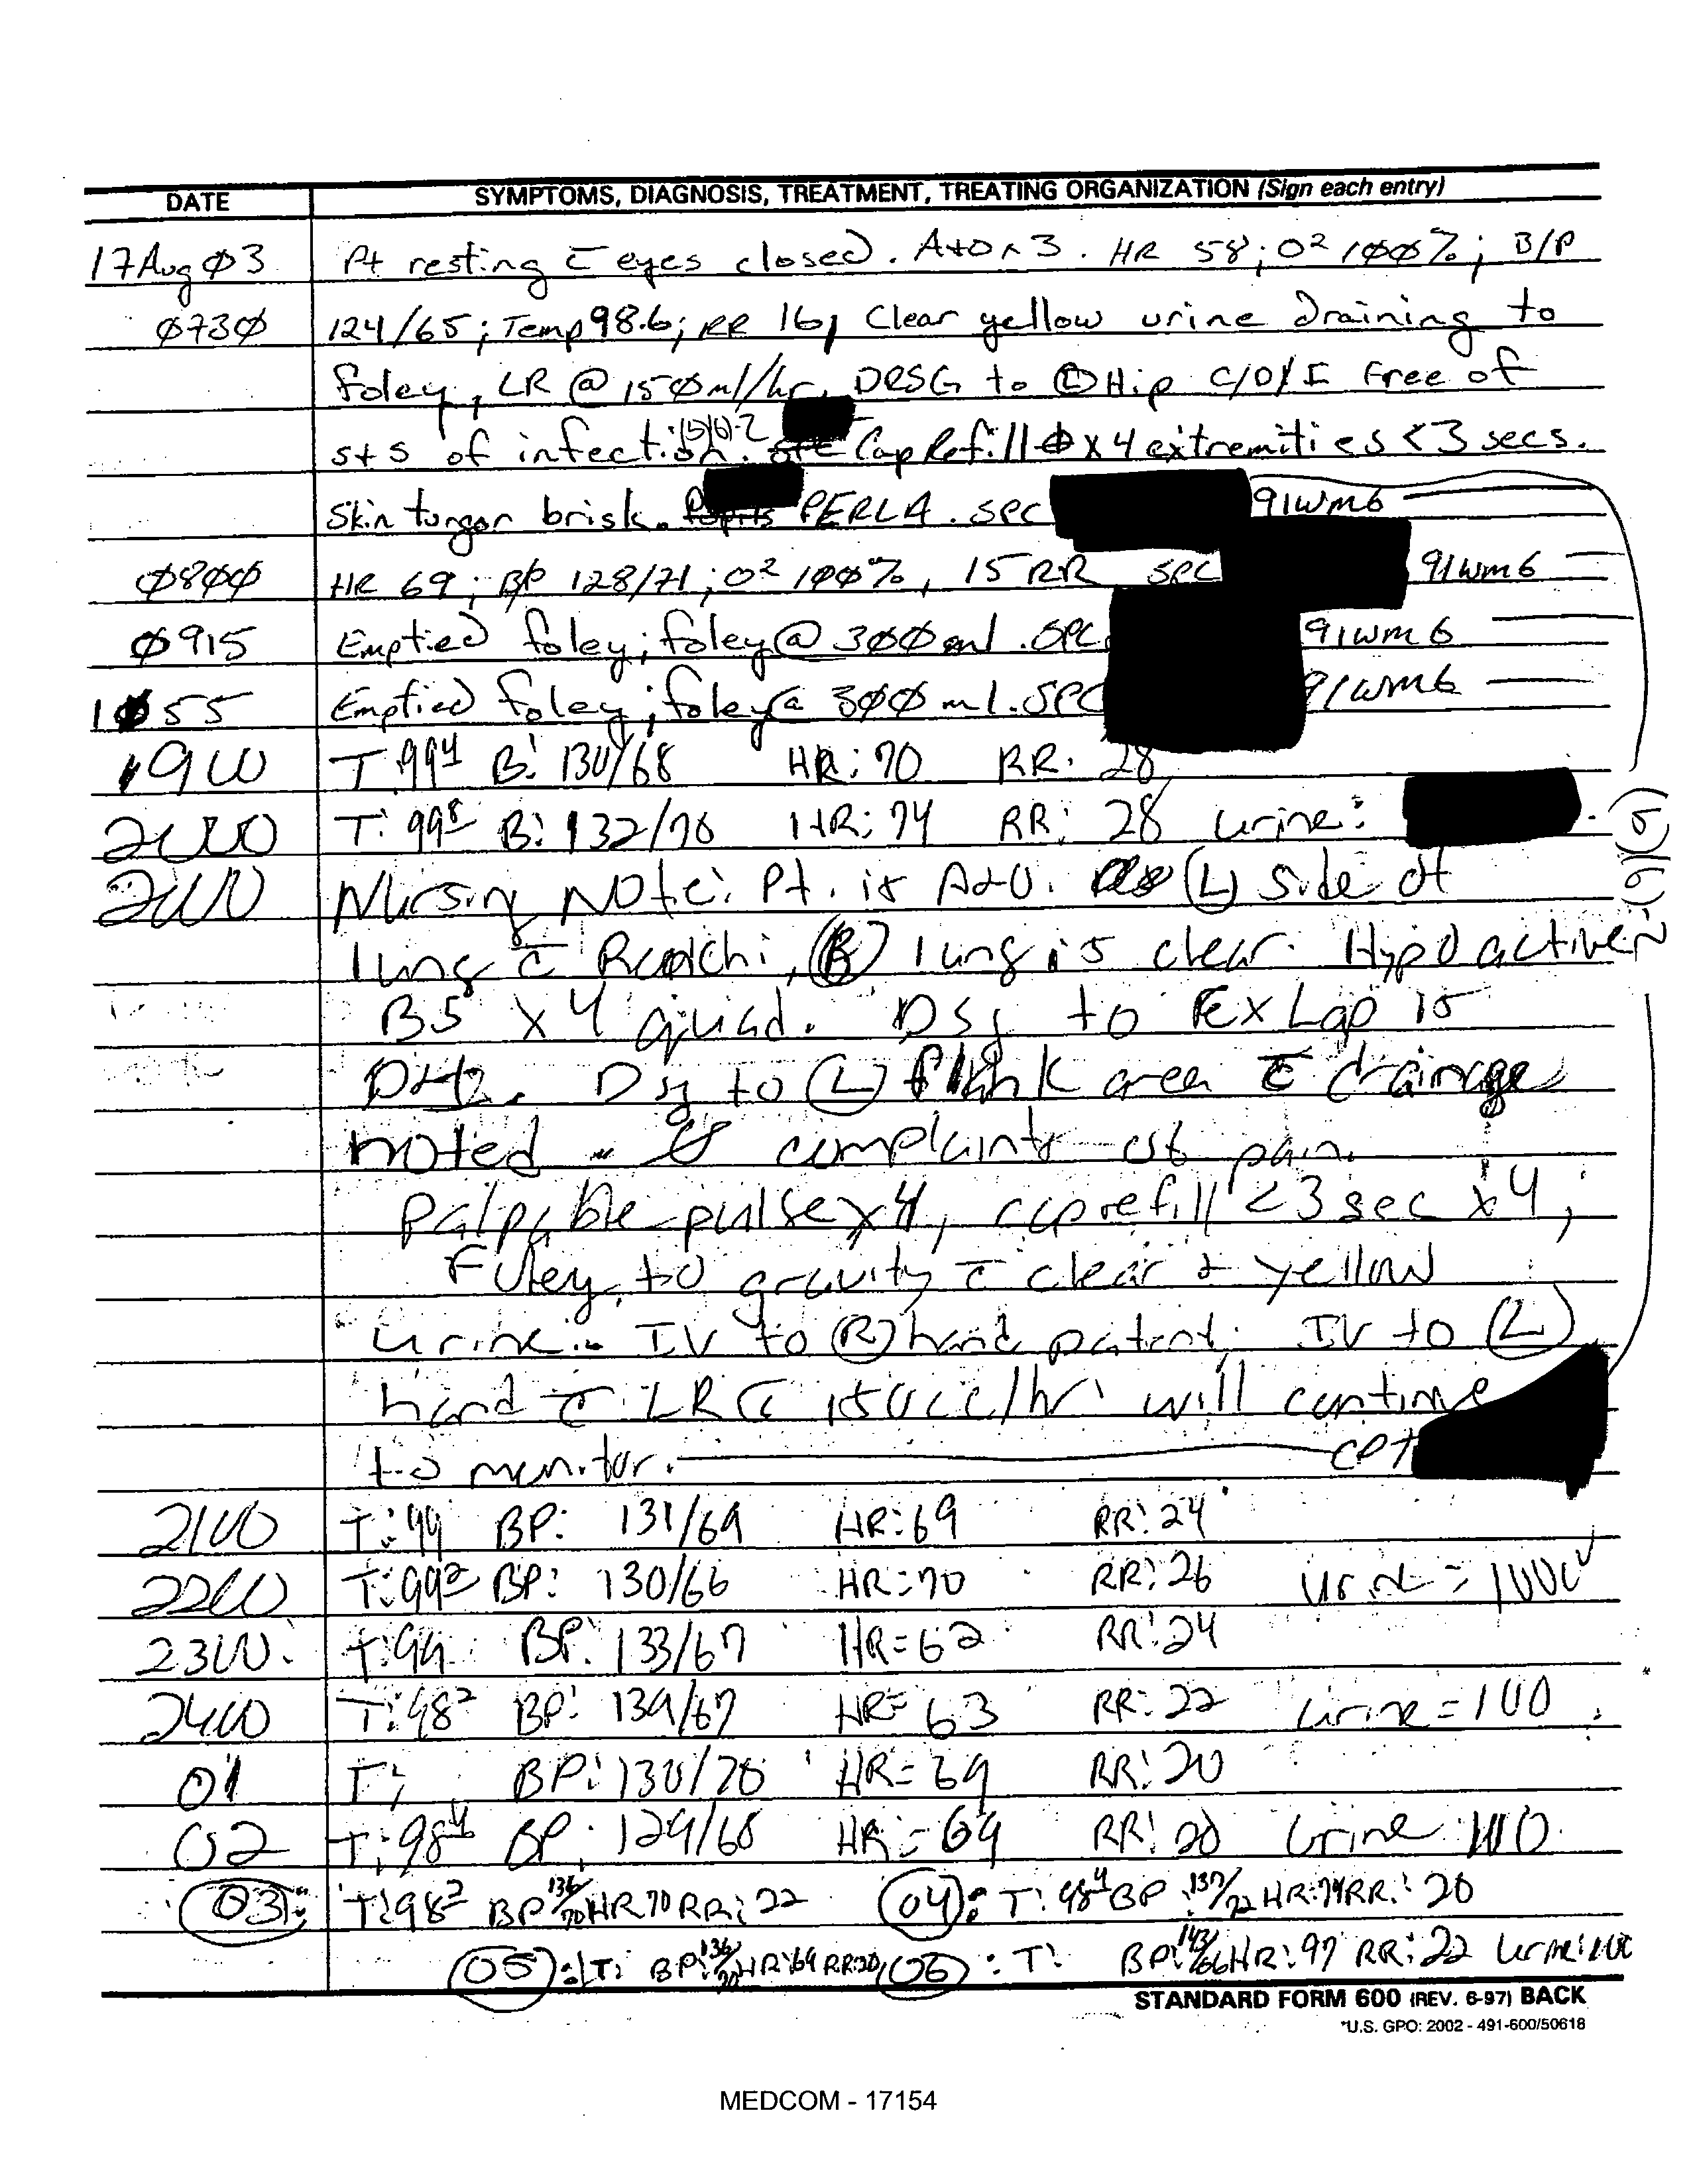 DATE SYMPTOMS, DIAGNOSIS, TREATMENT, TREATING ORGANIZATION (Sign each entry)
17Aug Ø3 Pt resting c̄ eyes closed. A+O x 3. HR 58; O² 1ØØ%; B/P
Ø73Ø 124/65; Temp 98.6; RR 16, Clear yellow urine draining to
foley, LR @ 15Ø ml/hr, DRSG to Ⓛ Hip C/D/I Free of
s+s of infection. (b)(6)-2 Cap Refill x 4 extremities < 3 secs.
Skin turgor brisk. PERLA. SPC 91WM6
Ø8ØØ HR 69; BP 128/71; O² 1ØØ%, 15 RR SPC 91WM6
Ø915 Emptied foley; foley @ 3ØØ ml. SPC 91WM6
1Ø55 Emptied foley; foley @ 3ØØ ml. SPC 91WM6
1900 T: 99⁴ B: 130/68 HR: 70 RR: 28
2000 T: 99⁸ B: 132/70 HR: 74 RR: 28 urine:
(b)(6)-2
2000 Nursing Note: Pt. is A+O. (L) side of
lung c̄ Ronchi, (R) lung is clear. Hypoactive
BS x 4 quad. Dsg to Ex Lap is
Dsg to (L) flank area c̄ drainage
noted. Ø complaints of pain.
Palpable pulse x 4, cap refill < 3 sec x 4;
Foley to gravity c̄ clear + yellow
urine. IV to (R) hand patent. IV to (L)
hand c̄ LR @ 150cc/hr will continue
to monitor. CPT
2100 T: 99 BP: 131/69 HR: 69 RR: 24
2200 T: 99² BP: 130/66 HR: 70 RR: 26 urine =
2300 T: 99 BP: 133/67 HR = 62 RR: 24
2400 T: 98² BP: 139/67 HR = 63 RR: 22 urine = 100
01 T: BP: 130/70 HR = 69 RR: 20
02 T: 98⁴ BP: 129/68 HR = 69 RR: 20 urine 100
03: T: 98² BP 136/70 HR 70 RR: 22 04: T: 98⁴ BP: 137/72 HR: 74 RR: 20
05: T: BP: 136/70 HR: 69 RR: 20, 06: T: BP: 143/66 HR: 97 RR: 22 urine: 100
STANDARD FORM 600 (REV. 6-97) BACK
*U.S. GPO: 2002 - 491-600/50618
MEDCOM - 17154